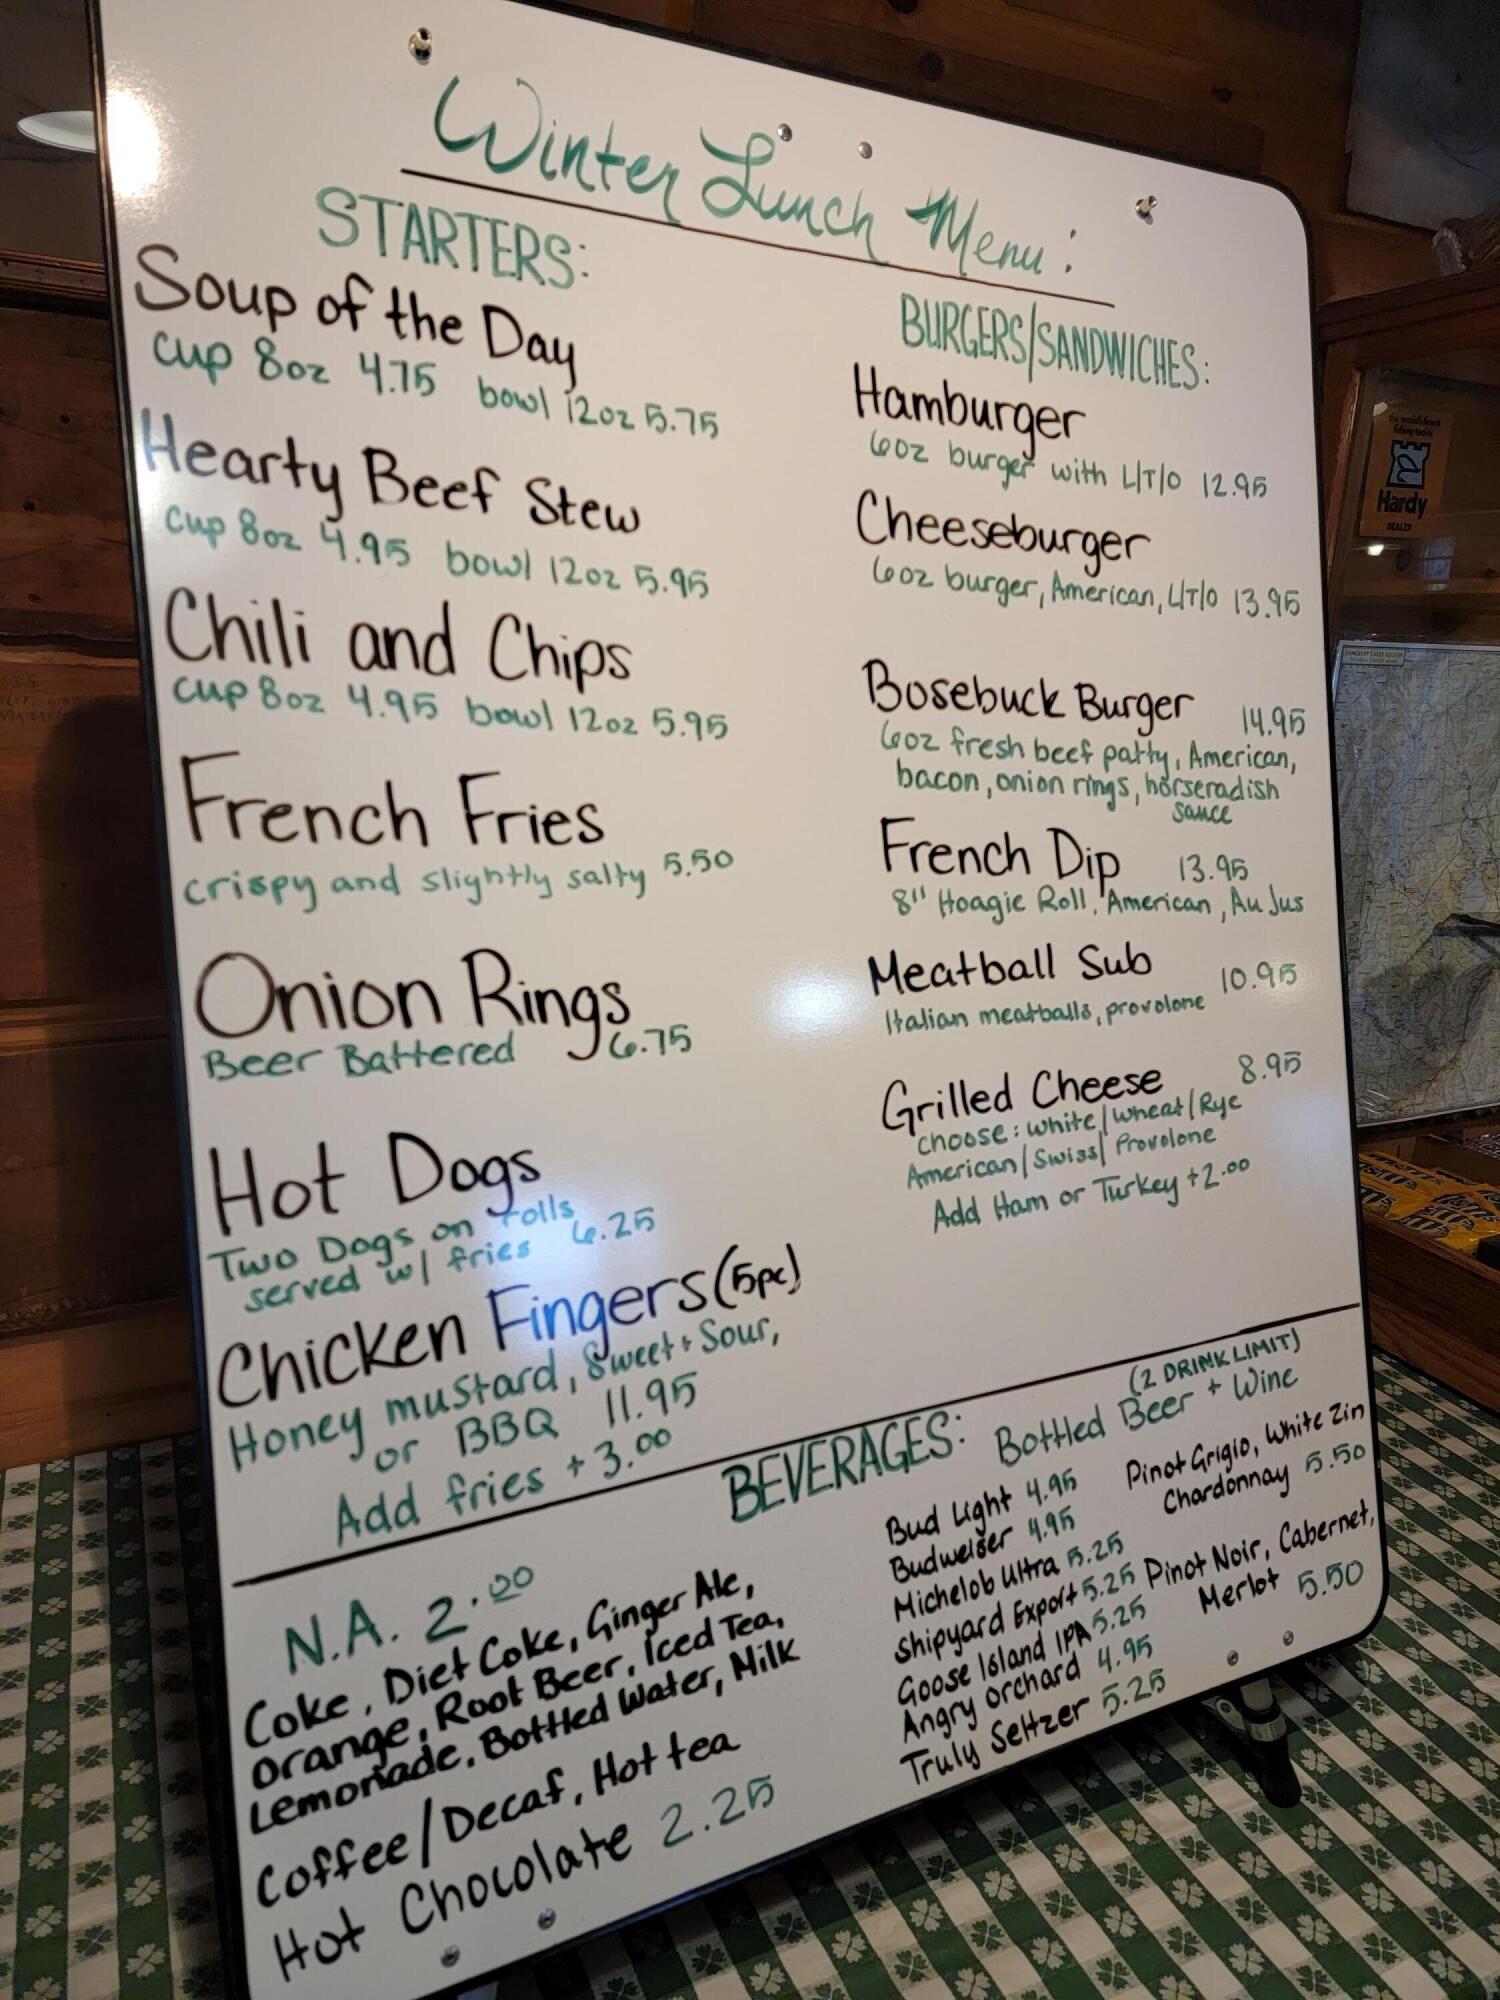 Winter Lunch Menu:
STARTERS:
Soup of the Day
cup 8oz 4.75 bowl 12oz 5.75
Hearty Beef Stew
cup 8oz 4.95 bowl 12oz 5.95
Chili and Chips
cup 8oz 4.95 bowl 12oz 5.95
French Fries
crispy and slightly salty 5.50
Onion Rings
Beer Battered 6.75
Hot Dogs
Two Dogs on rolls
served w/ fries 6.25
Chicken Fingers (5pc)
Honey mustard, Sweet + Sour,
or BBQ 11.95
Add fries + 3.00
BURGERS/SANDWICHES:
Hamburger
6oz burger with L/T/O 12.95
Cheeseburger
6oz burger, American, L/T/O 13.95
Bosebuck Burger 14.95
6oz fresh beef patty, American,
bacon, onion rings, horseradish
sauce
French Dip 13.95
8" Hoagie Roll, American, Au Jus
Meatball Sub 10.95
Italian meatballs, provolone
Grilled Cheese 8.95
choose: white/wheat/Rye
American/Swiss/Provolone
Add Ham or Turkey +2.00
BEVERAGES:
N.A. 2.00
Coke, Diet Coke, Ginger Ale,
Orange, Root Beer, Iced Tea,
Lemonade, Bottled Water, Milk
Coffee/Decaf, Hot tea
Hot Chocolate 2.25
(2 DRINK LIMIT)
Bottled Beer + Wine
Bud Light 4.95
Budweiser 4.95
Michelob Ultra 5.25
Shipyard Export 5.25
Goose Island IPA 5.25
Angry Orchard 4.95
Truly Seltzer 5.25
Pinot Grigio, White Zin
Chardonnay 5.50
Pinot Noir, Cabernet,
Merlot 5.50
the world's finest
fishing tackle
Hardy
DEALER
RANGELEY LAKES REGION
M&M's